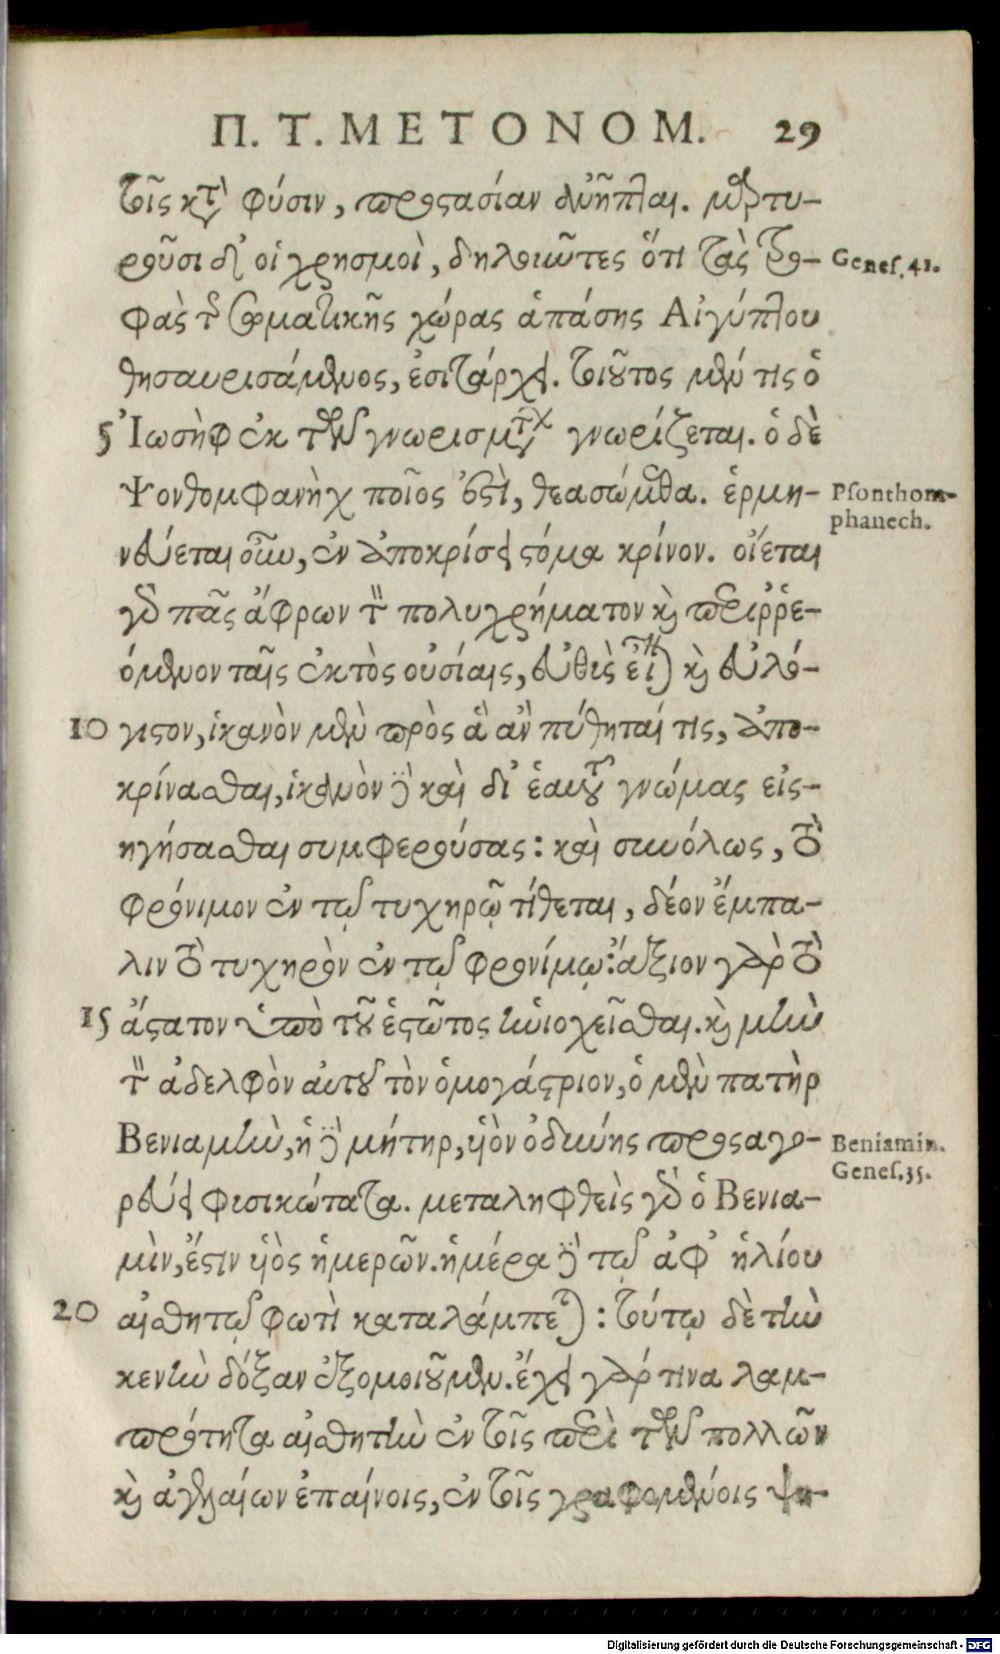 Π. Τ. ΜΕΤΟΝΟΜ. 29
τοῖς κατὰ φύσιν, προστασίαν ἀνῆπται. μαρτυ-
ροῦσι δὲ οἱ χρησμοὶ, δηλοιῶτες ὅτι τὰς τρο- Genes. 41.
φὰς τῆς σωματικῆς χώρας ἁπάσης Αἰγύπτου
θησαυρισάμενος, ἐσιτάρχει. τοιοῦτος μέν τις ὁ
5 Ἰωσὴφ ἐκ τῶν γνωρισμάτων γνωρίζεται. ὁ δὲ
Ψονθομφανὴχ ποῖος ἐστὶ, θεασώμεθα. ἑρμη- Psonthom-
phanech.
νεύεται οὖν, ἐν ἀποκρίσει στόμα κρίνον. οἴεται
γὰρ πᾶς ἄφρων τὸν πολυχρήματον καὶ περιῤῥε-
όμενον ταῖς ἐκτὸς οὐσίαις, εὐθὺς εἶναι καὶ εὐλό-
10 γιστον, ἱκανὸν μὲν πρὸς ἃ ἂν πύθηταί τις, ἀπο-
κρίνασθαι, ἱκανὸν δὲ καὶ δι' ἑαυτοῦ γνώμας εἰς-
ηγήσασθαι συμφερούσας: καὶ συνόλως, τὸ
φρόνιμον ἐν τῷ τυχηρῷ τίθεται, δέον ἔμπα-
λιν τὸ τυχηρὸν ἐν τῷ φρονίμῳ: ἄξιον γὰρ τὸ
15 ἄστατον ὑπὸ τοῦ ἑστῶτος ἡνιοχεῖσθαι. καὶ μὴν
τὸν ἀδελφὸν αὐτοῦ τὸν ὁμογάστριον, ὁ μὲν πατὴρ
Βενιαμὴν, ἡ δὲ μήτηρ, υἱὸν ὀδύνης προσαγο- Beniamin.
Genes. 35.
ρεύει φυσικώτατα. μεταληφθεὶς γὰρ ὁ Βενια-
μὶν, ἔστιν υἱὸς ἡμερῶν. ἡμέρα δὲ τῷ ἀφ' ἡλίου
20 αἰσθητῷ φωτὶ καταλάμπεται: τούτῳ δὲ τὴν
κενὴν δόξαν ἐξομοιοῦμεν. ἔχει γάρ τινα λαμ-
πρότητα αἰσθητὴν ἐν τοῖς περὶ τῶν πολλῶν
καὶ ἀγελαίων ἐπαίνοις, ἐν τοῖς γραφομένοις ψη-
Digitalisierung gefördert durch die Deutsche Forschungsgemeinschaft - DFG